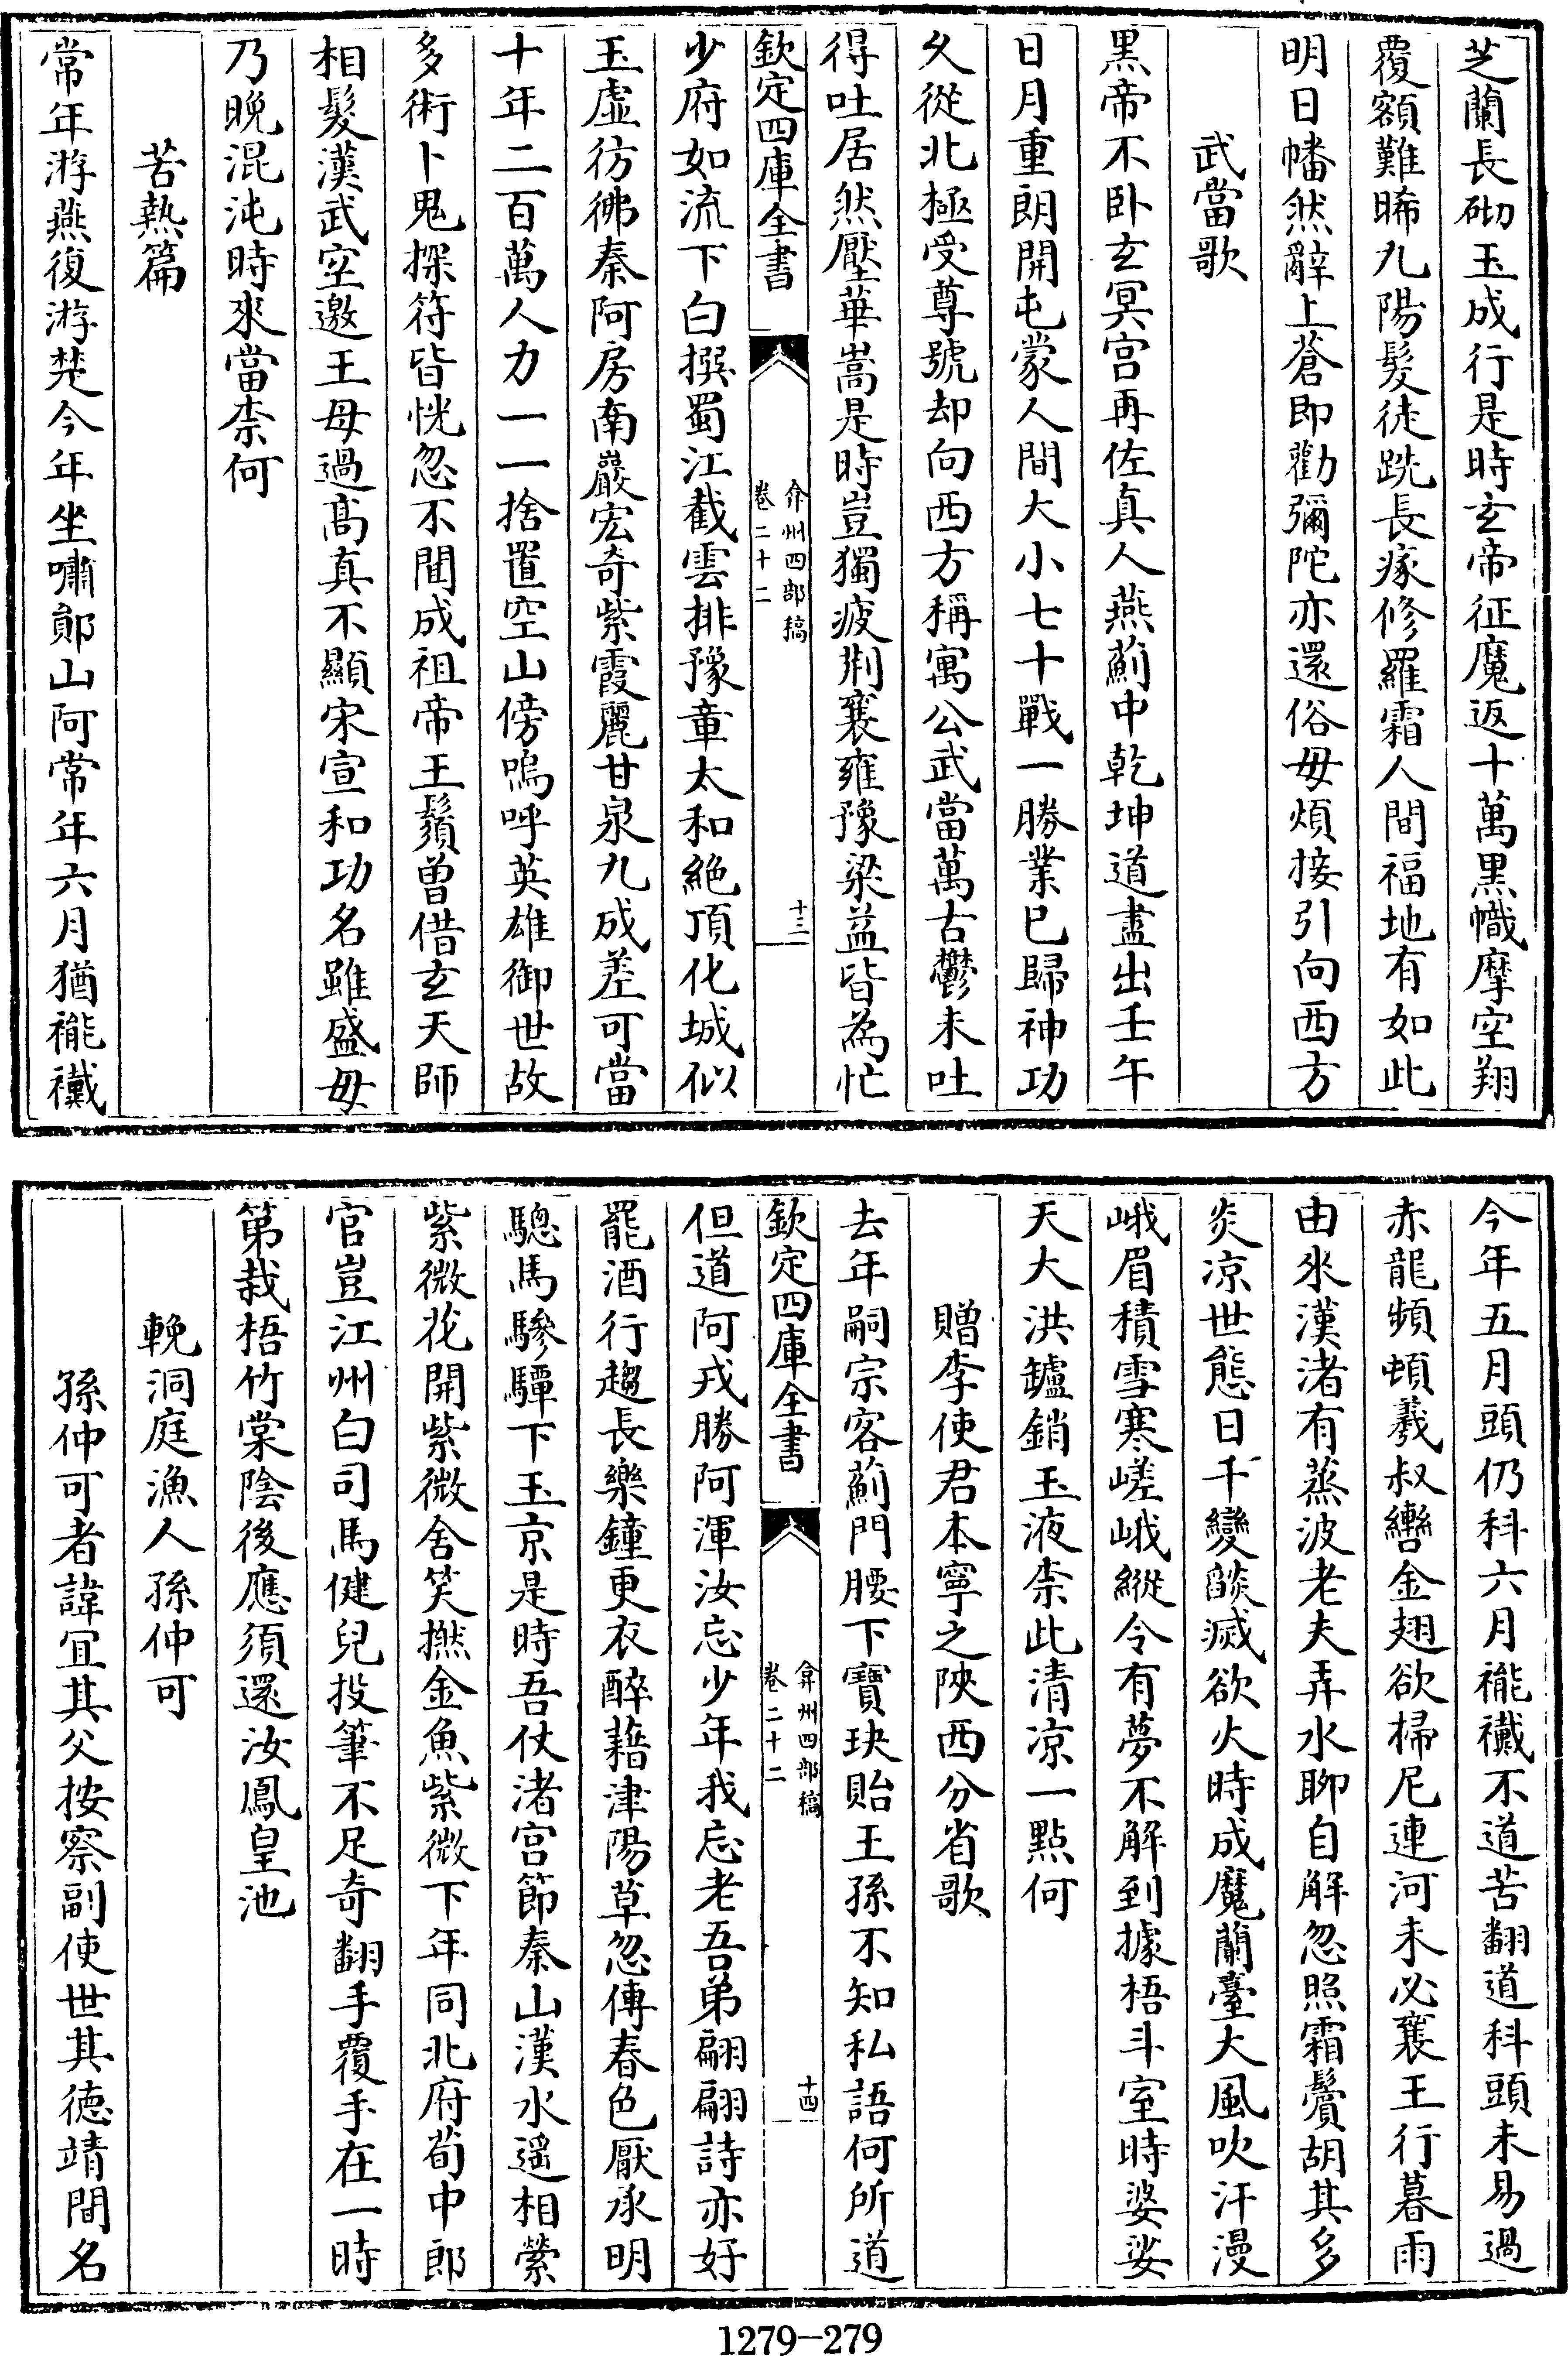 芝蘭長砌玉成行是時玄帝征魔返十萬黒幟摩空翔
覆額難晞九陽髮徒跣長瘃修羅霜人間福地有如此
明日幡然辭上蒼即勸彌陀亦還俗毋煩接引向西方
武當歌
黒帝不卧玄冥宫再佐真人燕薊中乾坤道盡出壬午
日月重朗開屯蒙人間大小七十戰一勝業已歸神功
乆從北極受尊號却向西方稱寓公武當萬古鬱未吐
得吐居然壓華嵩是時豈獨疲荆襄雍豫梁益皆為忙
欽定四庫全書
弇州四部稿
卷二十二
十三
少府如流下白撰蜀江截雲排豫章太和絶頂化城似
玉虚彷彿秦阿房南巖宏竒紫霞麗甘泉九成差可當
十年二百萬人力一一捨置空山傍嗚呼英雄御世故
多術卜鬼探符皆恍忽不聞成祖帝王鬚曽借玄天師
相髮漢武空邀王母過髙真不顯宋宣和功名雖盛毋
乃晩混沌時來當柰何
苦熱篇
常年游燕復游楚今年坐嘯鄖山阿常年六月猶褦襶
今年五月頭仍科六月褦襶不道苦翻道科頭未易過
赤龍頻頓羲叔轡金翅欲掃尼連河未必襄王行暮雨
由來漢渚有蒸波老夫弄水聊自解忽照霜鬢胡其多
炎凉世態日千變燄滅欲火時成魔蘭臺大風吹汗漫
峨眉積雪寒嵯峨縱令有夢不解到據梧斗室時婆娑
天大洪鑪銷玉液柰此清凉一點何
贈李使君本寧之陜西分省歌
去年嗣宗客薊門腰下寶玦貽王孫不知私語何所道
欽定四庫全書
弇州四部稿
卷二十二
十四
但道阿戎勝阿渾汝忘少年我忘老吾弟翩翩詩亦好
罷酒行趨長樂鐘更衣醉藉津陽草忽傳春色厭承明
驄馬驂驔下玉京是時吾仗渚宫節秦山漢水遥相縈
紫微花開紫微舍笑撚金魚紫微下年同北府荀中郎
官豈江州白司馬健兒投筆不足竒翻手覆手在一時
第栽梧竹棠陰後應須還汝鳳皇池
輓洞庭漁人孫仲可
孫仲可者諱冝其父按察副使世其徳靖間名
1279-279